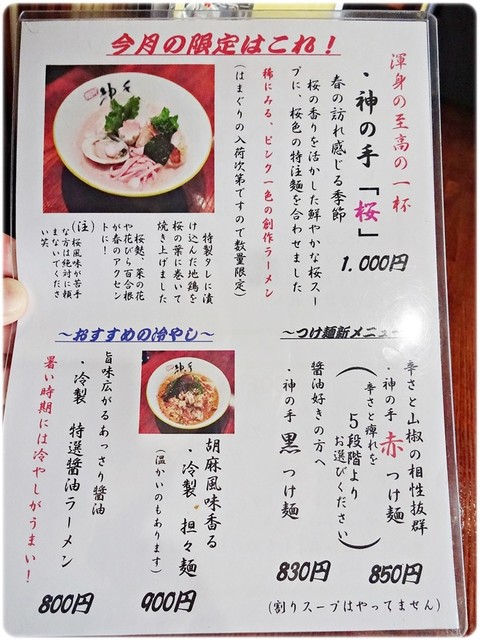 今月の限定はこれ！
渾身の至高の一杯
・神の手「桜」
1.000円
春の訪れ感じる季節
桜の香りを活かした鮮やかな桜スー
プに、桜色の特注麺を合わせました
稀にみる、ピンク一色の創作ラーメン
(はまぐりの入荷次第ですので数量限定)
特製タレに漬
け込んだ地鶏を
桜の葉に巻いて
焼き上げました
桜麩、菜の花
や花びら百合根
が春のアクセン
トに！
(注)
桜風味が苦手
な方は絶対に頼
まないでくださ
い笑
～つけ麺新メニュー
辛さと山椒の相性抜群
・神の手 赤 つけ麺
(辛さと痺れを
5段階より
お選びください)
850円
醤油好きの方へ
・神の手 黒 つけ麺
830円
(割りスープはやってません)
～おすすめの冷やし～
胡麻風味香る
・冷製 担々麺
(温かいのもあります)
900円
旨味広がるあっさり醤油
・冷製 特選醤油ラーメン
800円
暑い時期には冷やしがうまい！
神の手
神の手